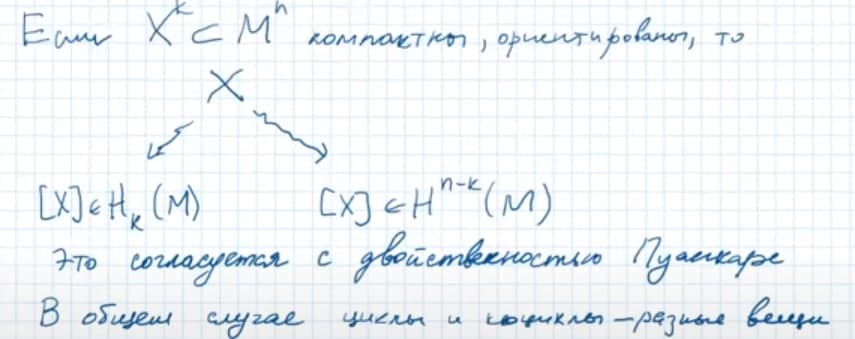 Если X^k ⊂ M^n компактны, ориентированы, то
X
[X] ∈ H_k (M) [X] ∈ H^{n-k} (M)
Это согласуется с двойственностью Пуанкаре
В общем случае циклы и коциклы – разные вещи